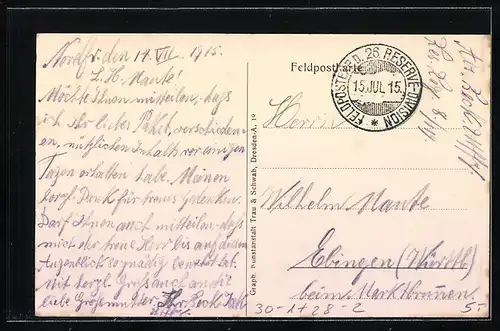 Nordfr. den 14 VII. 1915.
L. H. Mante!
Möchte Ihnen mitteilen, daß
ich Ihr liebes Paket, verschiedenen
nützlichen Inhalts vor einigen
Tagen erhalten habe. Meinen
herzl. Dank für treues Gedenken.
Darf Ihnen auch mitteilen, daß
mich der treue Herr bis auf diesen
Augenblick so gnädig bewahrt hat.
Mit herzl. Gruß auch an die
liebe Großmutter
Feldpostkarte
FELDPOSTEXP. D. 26. RESERVE-DIVISION
15 JUL 15
Herrn
Wilhelm Mante
Ebingen (Württbg)
beim Marktbrunnen.
Graph. Kunstanstalt Trau & Schwab, Dresden-A. 19
30-1+28-2
5-